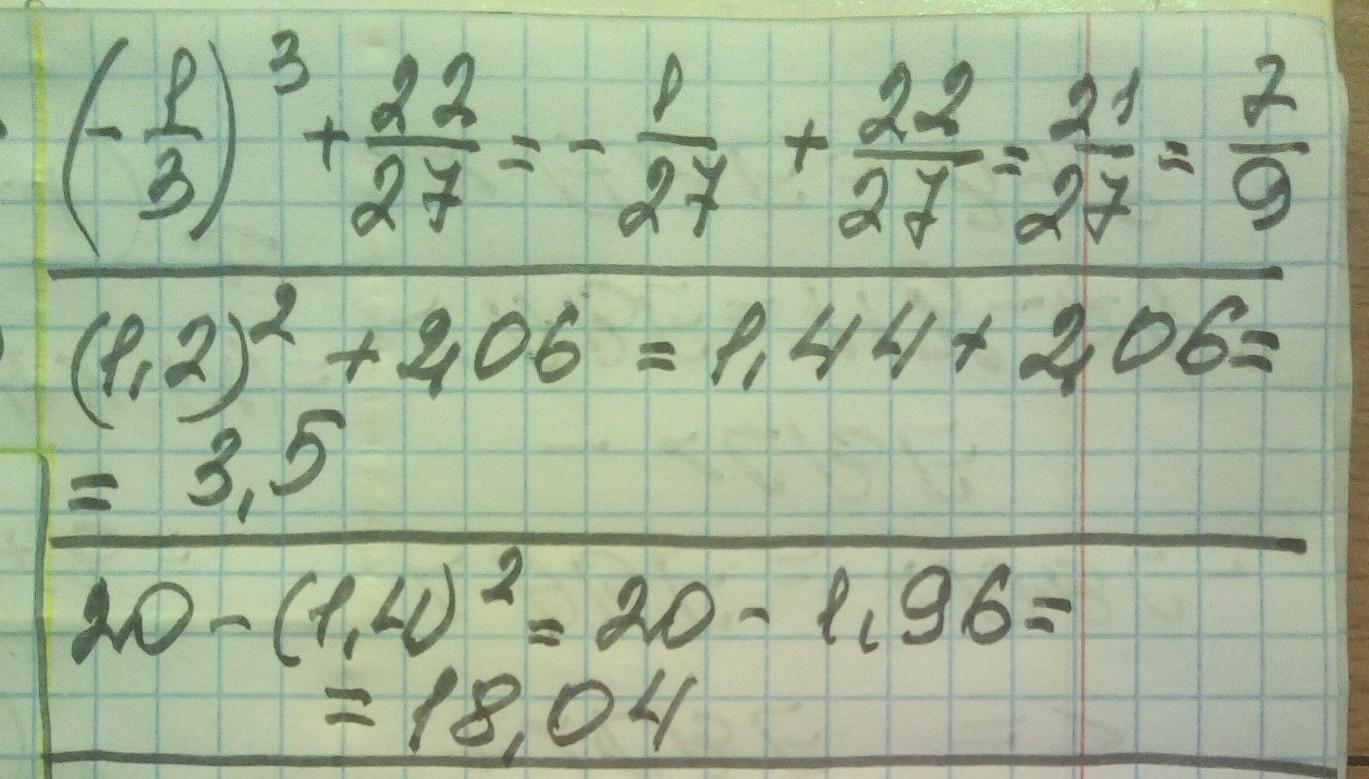 (-1/3)³ + 22/27 = - 1/27 + 22/27 = 21/27 = 7/9
(1,2)² + 2,06 = 1,44 + 2,06 =
= 3,5
20 - (1,4)² = 20 - 1,96 =
= 18,04